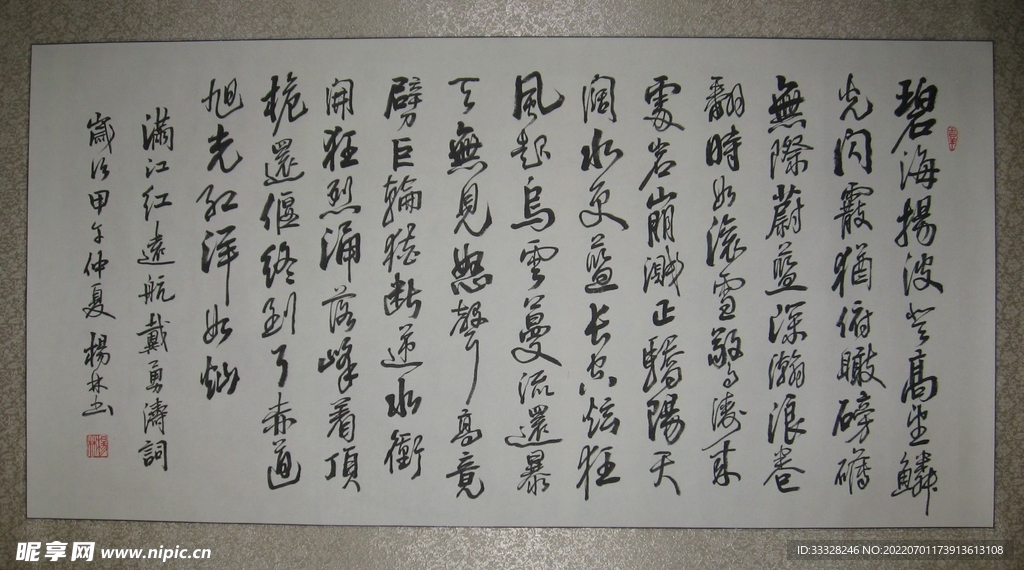 碧海揚波登高望鱗
光閃霞猶俯瞰磅礴
無際蔚藍深瀚浪卷
翻時如滾雪驚濤来
處岩崩濺正驕陽天
闊水更藍長空炫狂
風起烏雲蔓流還暴
天無見怒聲高竟
劈巨輪猶断逆水衝
開狂烈涌落峰着頂
桅還偃終到了赤道
旭光紅洋如灿
滿江紅遠航戴勇濤詞
歲次甲午仲夏楊林書
昵享网 www.nipic.cn
ID:33328246 NO:20220701173913613108